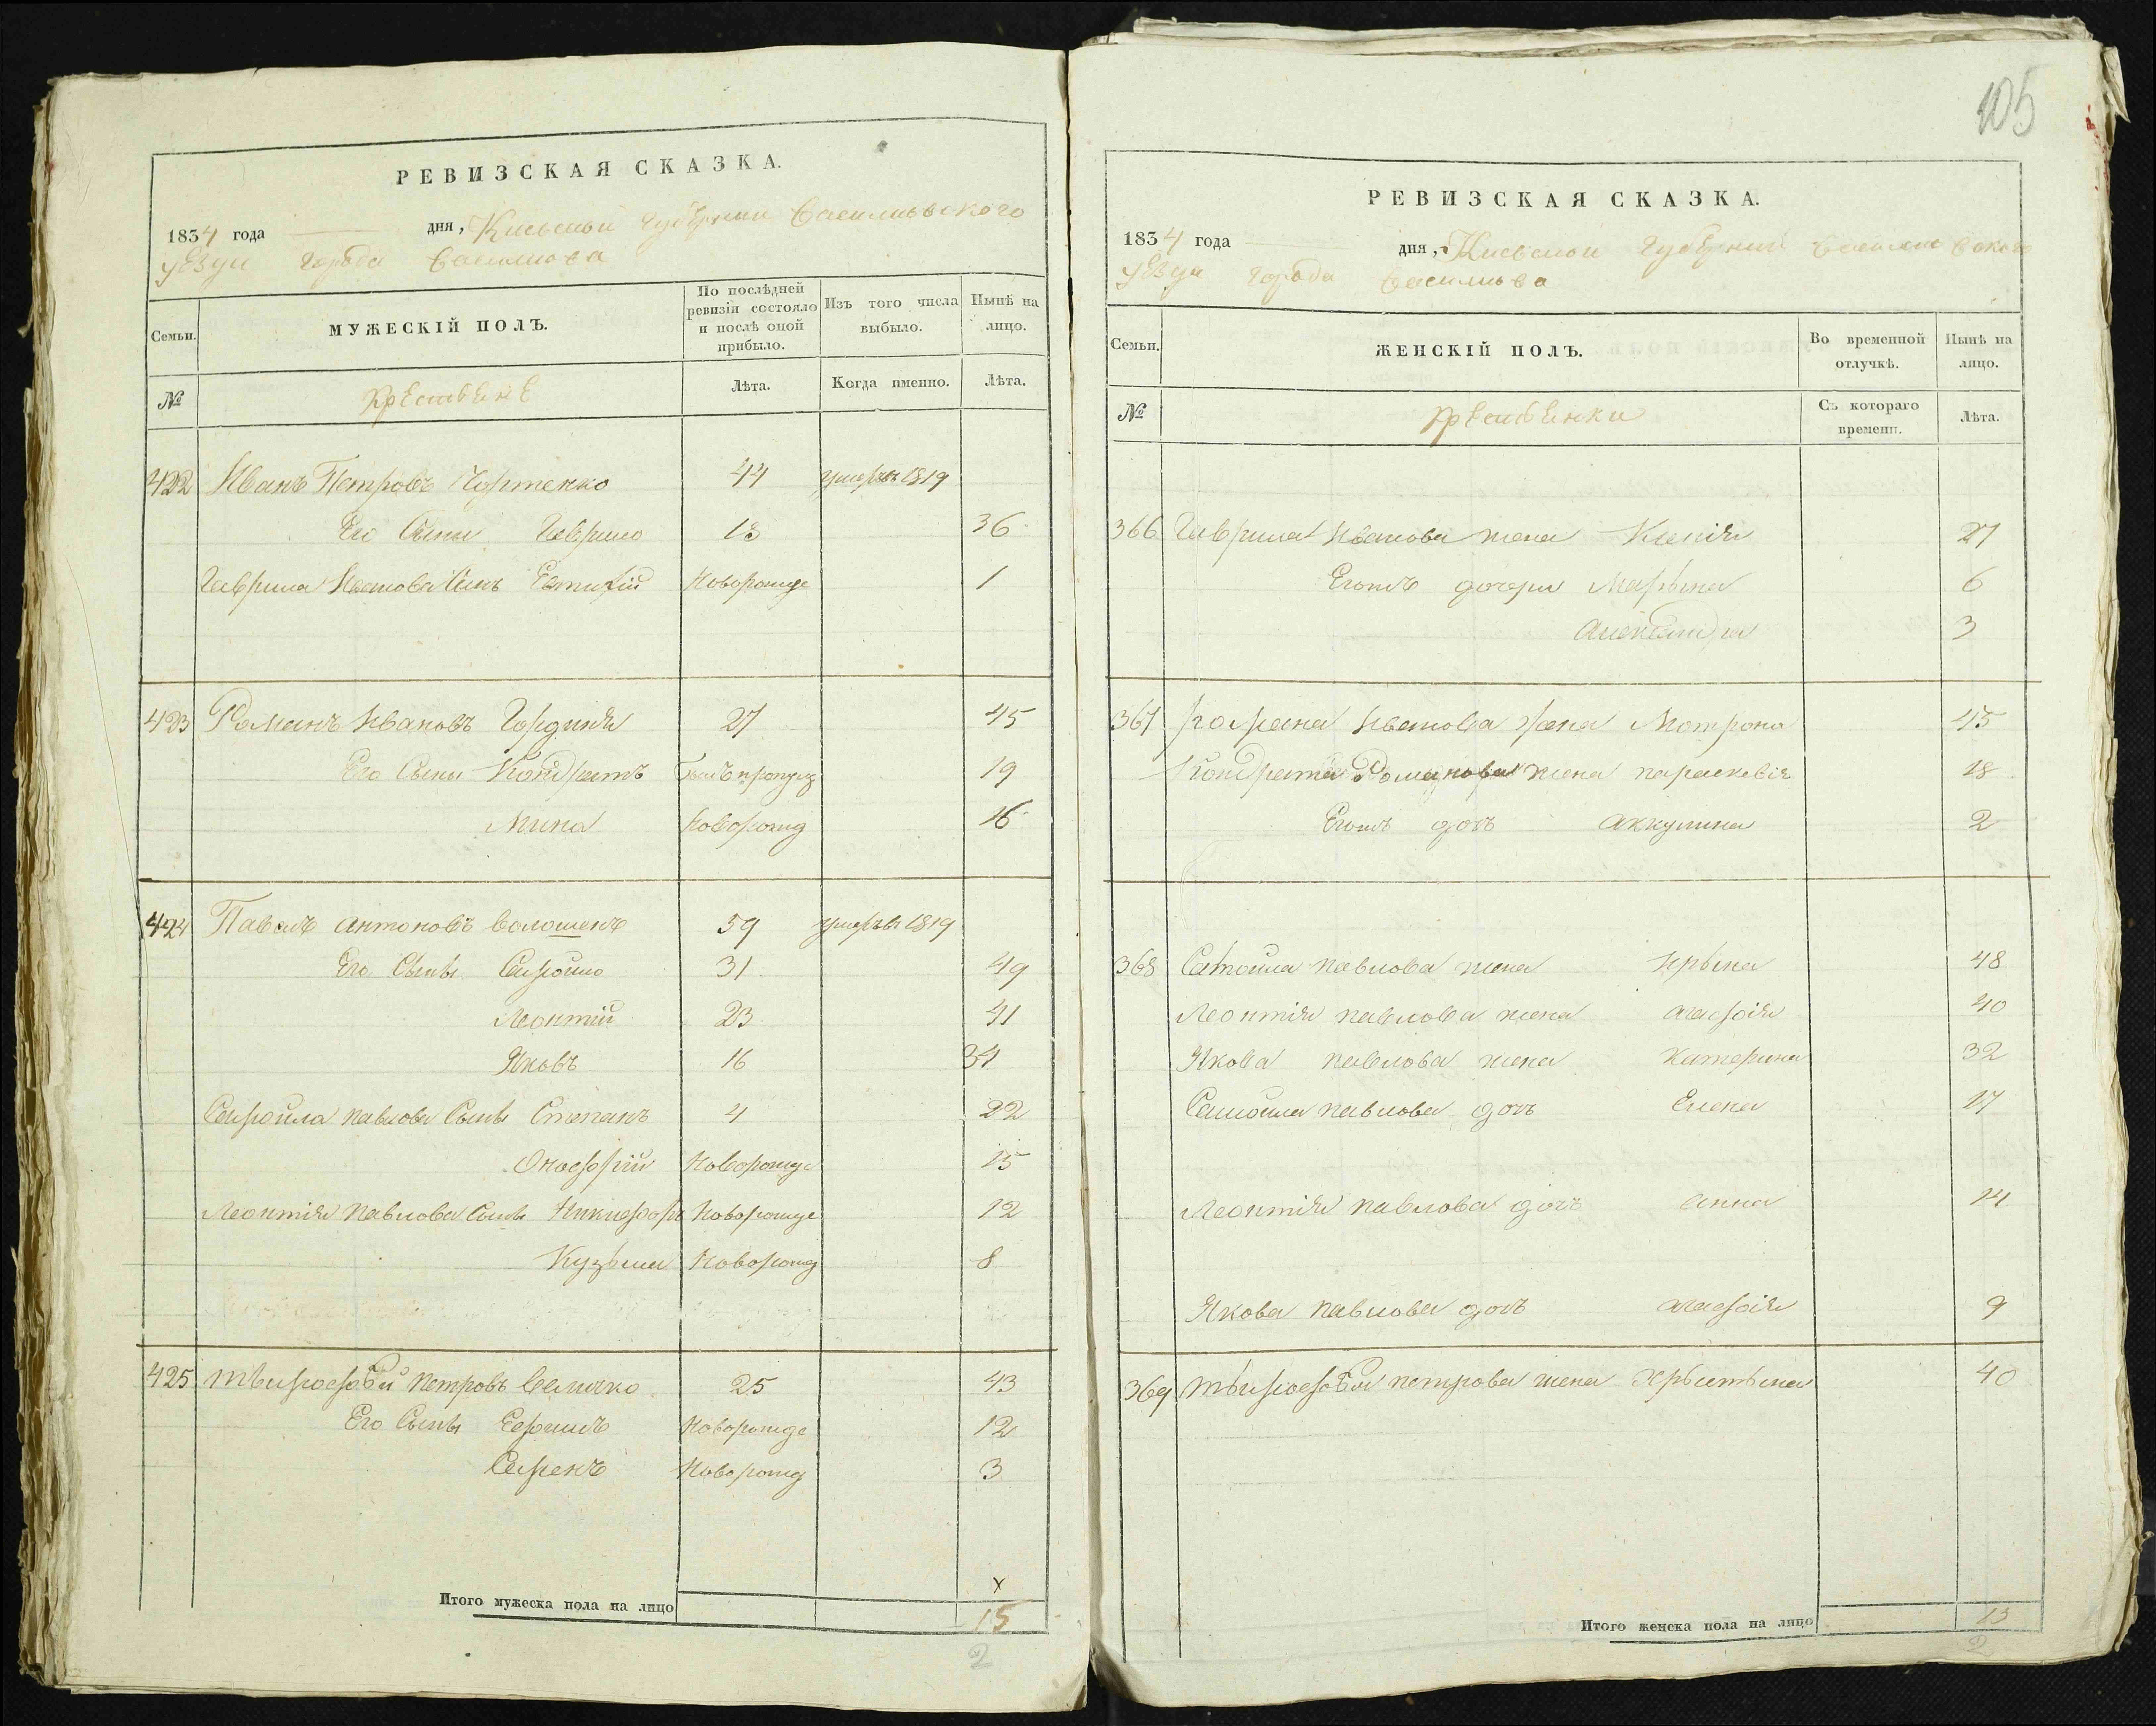 РЕВИЗСКАЯ СКАЗКА.
1834 года дня, Киевской Губернии Васильковского
уезда города Василькова
Семьи. МУЖЕСКІЙ ПОЛЪ. По послѣдней ревизіи состояло и послѣ оной прибыло. Изъ того числа выбыло. Нынѣ на лицо.
№ Крестьяне Лѣта. Когда именно. Лѣта.
422 Иванъ Петровъ Чортенко 44 умеръ въ 1819
Его Сыны Гаврило 18 36
Гаврила Иванова Сынъ Евтихій Новорожде 1
423 Романъ Ивановъ Гординя 27 45
Его Сыны Кондратъ 19
Мина Новорожд 16
424 Павелъ Антоновъ Волошенъ 59 умеръ въ 1819
Его Сыны Самойло 31 49
Леонтій 23 41
Яковъ 16 34
Самойла Павлова Сыны Степанъ 4 22
Новорожде 15
Леонтія Павлова Сыны Никифоръ Новорожде 12
Кузьма Новорожд 8
425 Тимофѣй Петровъ Величко 25 43
Его Сыны Ефимъ Новорожде 12
Новорожд 3
Итого мужеска пола на лицо
х
15
2
105
РЕВИЗСКАЯ СКАЗКА.
1834 года дня, Киевской Губернии Васильковского
уезда города Василькова
Семьи. ЖЕНСКІЙ ПОЛЪ. Во временной отлучкѣ. Нынѣ на лицо.
№ Крестьянки Съ котораго времени. Лѣта.
366 Гаврила Иванова жена Ксенія 27
Егожъ дочери Марьяна 6
Александра 3
367 Романа Иванова жена Мотрона 45
Кондрата Романова жена Параскевія 18
Егожъ дочь Аккулина 2
368 Самойла Павлова жена Ирына 48
Леонтія Павлова жена Агафія 40
Якова Павлова жена Катерина 32
Самойла Павлова дочь Елена 17
Леонтія Павлова дочь Анна 14
Якова Павлова дочь Агафія 9
369 Тимофѣя Петрова жена Хрыстына 40
Итого женска пола на лицо 13
2